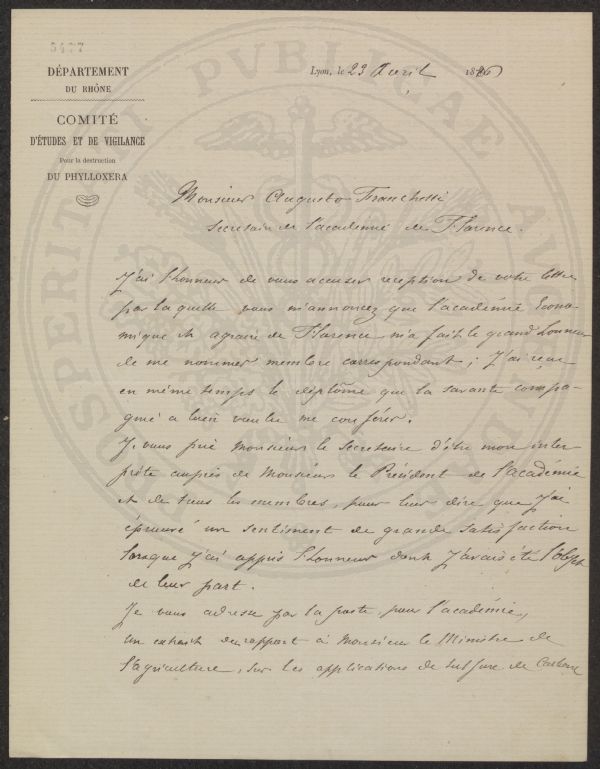 3477
DÉPARTEMENT
DU RHÔNE
COMITÉ
D'ÉTUDES ET DE VIGILANCE
Pour la destruction
DU PHYLLOXERA
Lyon, le 23 Avril 1876
Monsieur Augusto Franchetti
Secretaire de l'academie de Florence.
J'ai l'honneur de vous accuser reception de votre lettre
par laquelle vous m'annoncez que l'académie Econo-
mique et agraire de Florence m'a fait le grand honneur
de me nommer membre correspondant; J'ai reçu
en même temps le diplôme que la savante compa-
gnie a bien voulu me conférer.
Je vous prie Monsieur le Secretaire d'être mon inter-
prète auprès de Monsieur le Président de l'academie
et de tous les membres, pour leur dire que j'ai
éprouvé un sentiment de grande satisfaction
lorsque j'ai appris l'honneur dont j'avais été l'objet
de leur part.
Je vous adresse par la poste, pour l'académie,
un extrait du rapport à Monsieur le Ministre de
l'agriculture, sur les applications de sulfure de Carbone
PUBLICAE
PROSPERITATI